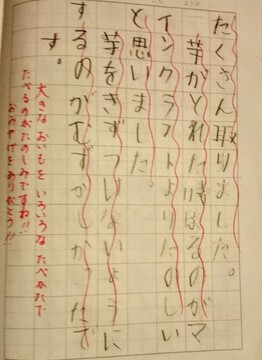 たくさん取りました。
芋がとれた時ほるのがマ
インクラフトよりたのしい
と思いました。
芋をきずつけないように
するのがむずかしかったで
す。
大きなおいもをいろいろなたべかたで
たべるのがたのしみですね!!
おみやげをありがとう!!